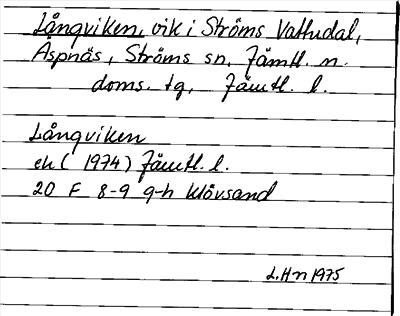 Långviken, vik i Ströms Vattudal,
Äspnäs, Ströms sn, Jämtl. n.
doms. tg, Jämtl. l.
Långviken
ek ( 1974) Jämtl. l.
20 F 8-9 g-h Klövsand
L.Hn 1975